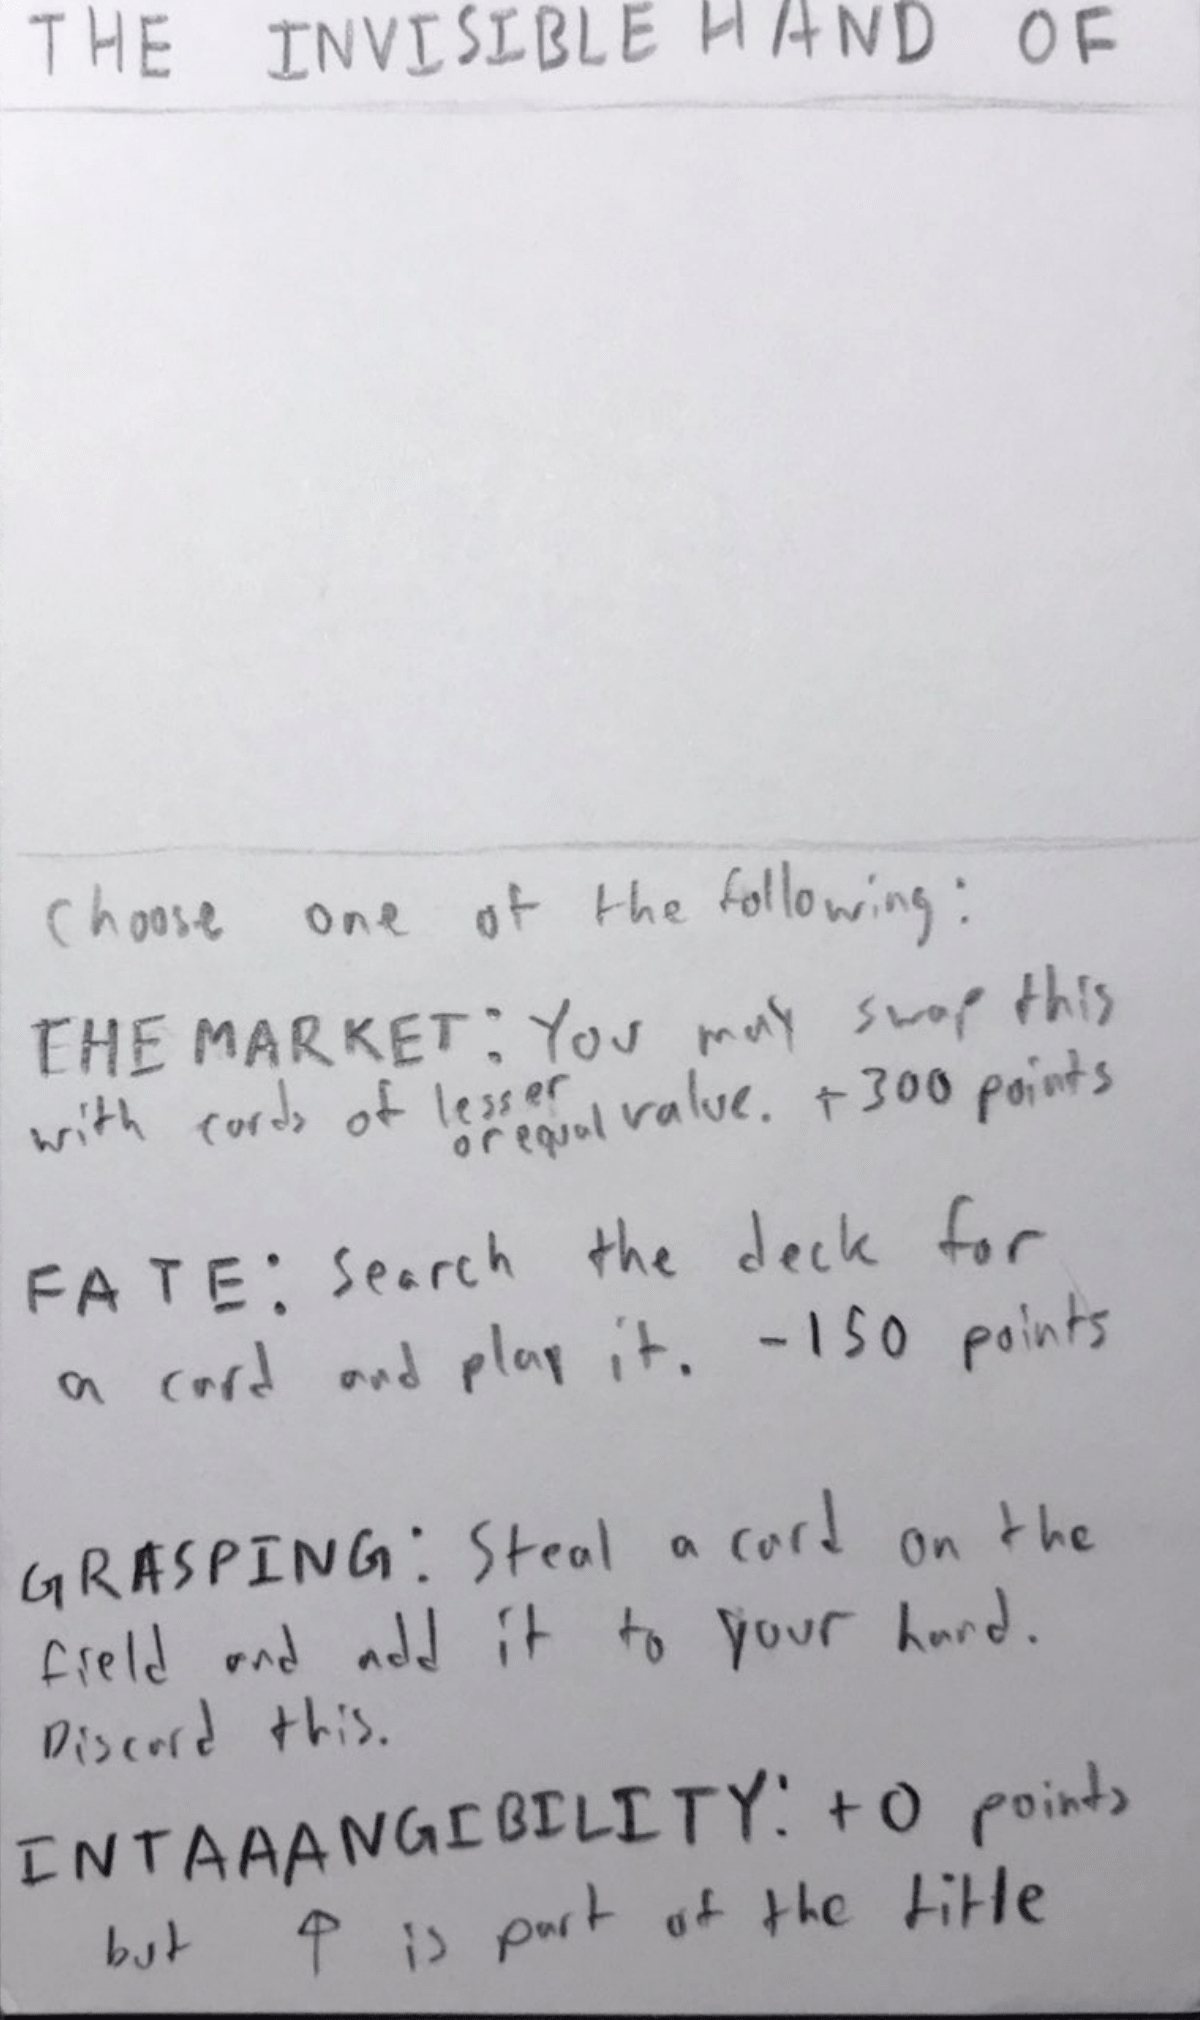 THE INVISIBLE HAND OF
Choose one of the following:
THE MARKET: You may swap this
with cards of lesser or equal value. +300 points
FATE: Search the deck for
a card and play it. -150 points
GRASPING: Steal a card on the
field and add it to your hand.
Discard this.
INTAAANGIBILITY: +0 points
but ↑ is part of the title